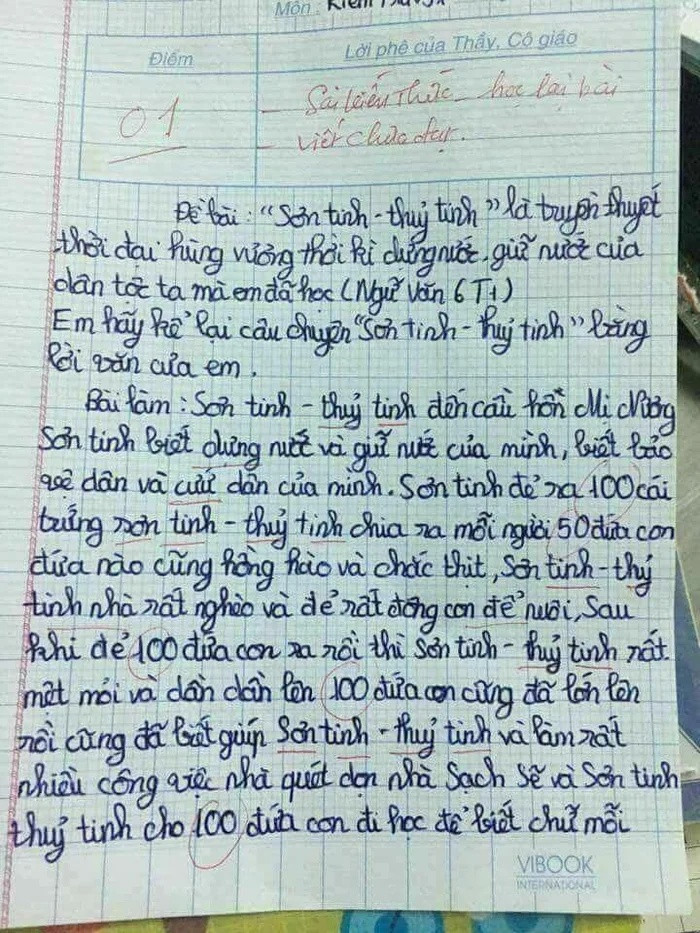 Môn: Kiểm tra
Điểm
Lời phê của Thầy, Cô giáo
01
- Sai kiến thức - học lại bài
- viết chưa đạt.
Đề bài: "Sơn tinh - thuỷ tinh" là truyền thuyết
thời đại hùng vương thời kì dựng nước, giữ nước của
dân tộc ta mà em đã học (Ngữ văn 6 T1)
Em hãy kể lại câu chuyện "Sơn tinh - thuỷ tinh" bằng
lời văn của em.
Bài làm: Sơn tinh - thuỷ tinh đến cầu hôn Mị Nương
Sơn tinh biết dựng nước và giữ nước của mình, biết bảo
vệ dân và cứu dân của mình. Sơn tinh đẻ ra 100 cái
trứng sơn tinh - thuỷ tinh chia ra mỗi người 50 đứa con
đứa nào cũng hồng hào và chắc thịt, Sơn tinh - thuỷ
tinh nhà rất nghèo và đẻ rất đông con để nuôi, Sau
khi đẻ 100 đứa con ra rồi thì Sơn tinh - thuỷ tinh rất
mệt mỏi và dần dần lên 100 đứa con cũng đã lớn lên
rồi cũng đã biết giúp Sơn tinh - thuỷ tinh và làm rất
nhiều công việc nhà quét dọn nhà Sạch sẽ và Sơn tinh
thuỷ tinh cho 100 đứa con đi học để biết chữ mỗi
VIBOOK
INTERNATIONAL